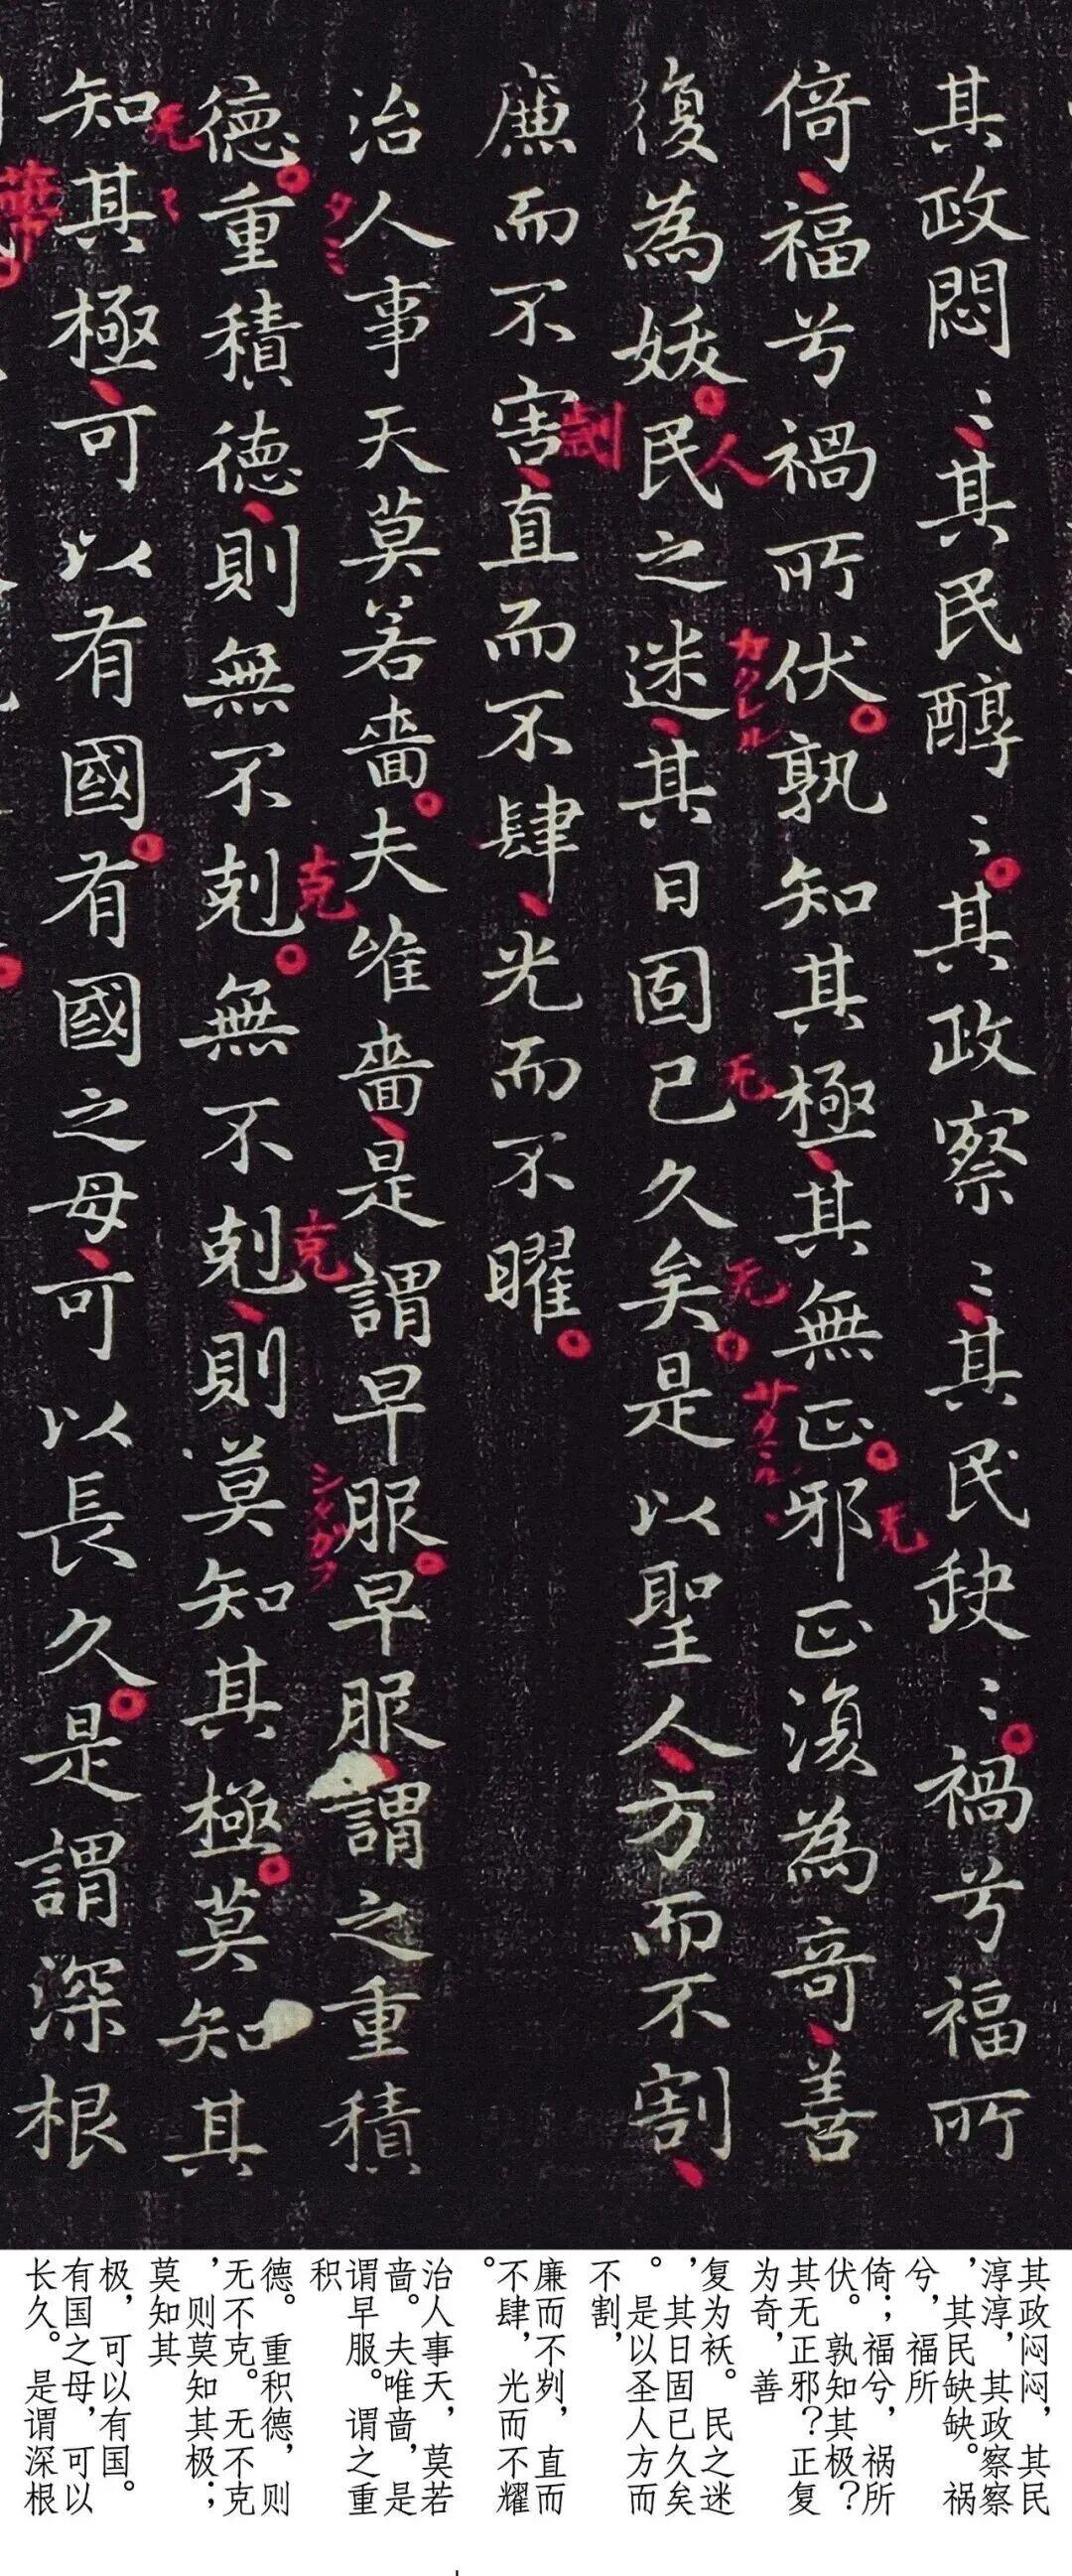 其政悶〻其民醇〻其政察〻其民𡙇〻禍兮福所
倚福兮禍所伏孰知其極其無正邪正復為奇善
復為妖民之迷其日固已久矣是以聖人方而不割
廉而不害直而不肆光而不曜
治人事天莫若嗇夫唯嗇是謂早服早服謂之重積
德重積德則無不剋無不剋則莫知其極莫知其
知其極可以有國有國之母可以長久是謂深根
无
人
カクレル
无
无
劌
タミ
克
克
无
其政闷闷，其民
淳淳，其政察察
，其民缺缺。祸
兮，福所
倚；福兮，祸所
伏。孰知其极？
其无正邪？正复
为奇，善
复为祅。民之迷
，其日固已久矣
。是以圣人方而
不割，
廉而不刿，直而
不肆，光而不耀
。
治人事天，莫若
啬。夫唯啬，是
谓早服。谓之重
积
德。重积德，则
无不克。无不克
，则莫知其极；
莫知其
极，可以有国。
有国之母，可以
长久。是谓深根